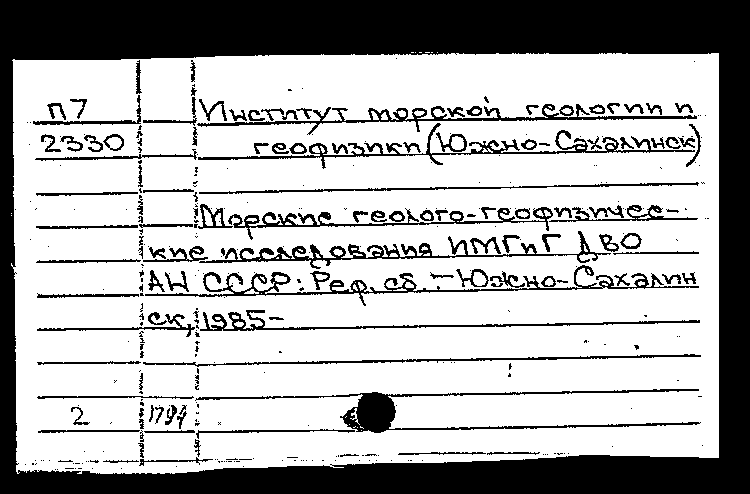 П7 Институт морской геологии и
2330 геофизики (Южно-Сахалинск)
Морские геолого-геофизичес-
кие исследования ИМГиГ ДВО
АН СССР: Реф. сб. – Южно-Сахалин
ск, 1985–
2 1794